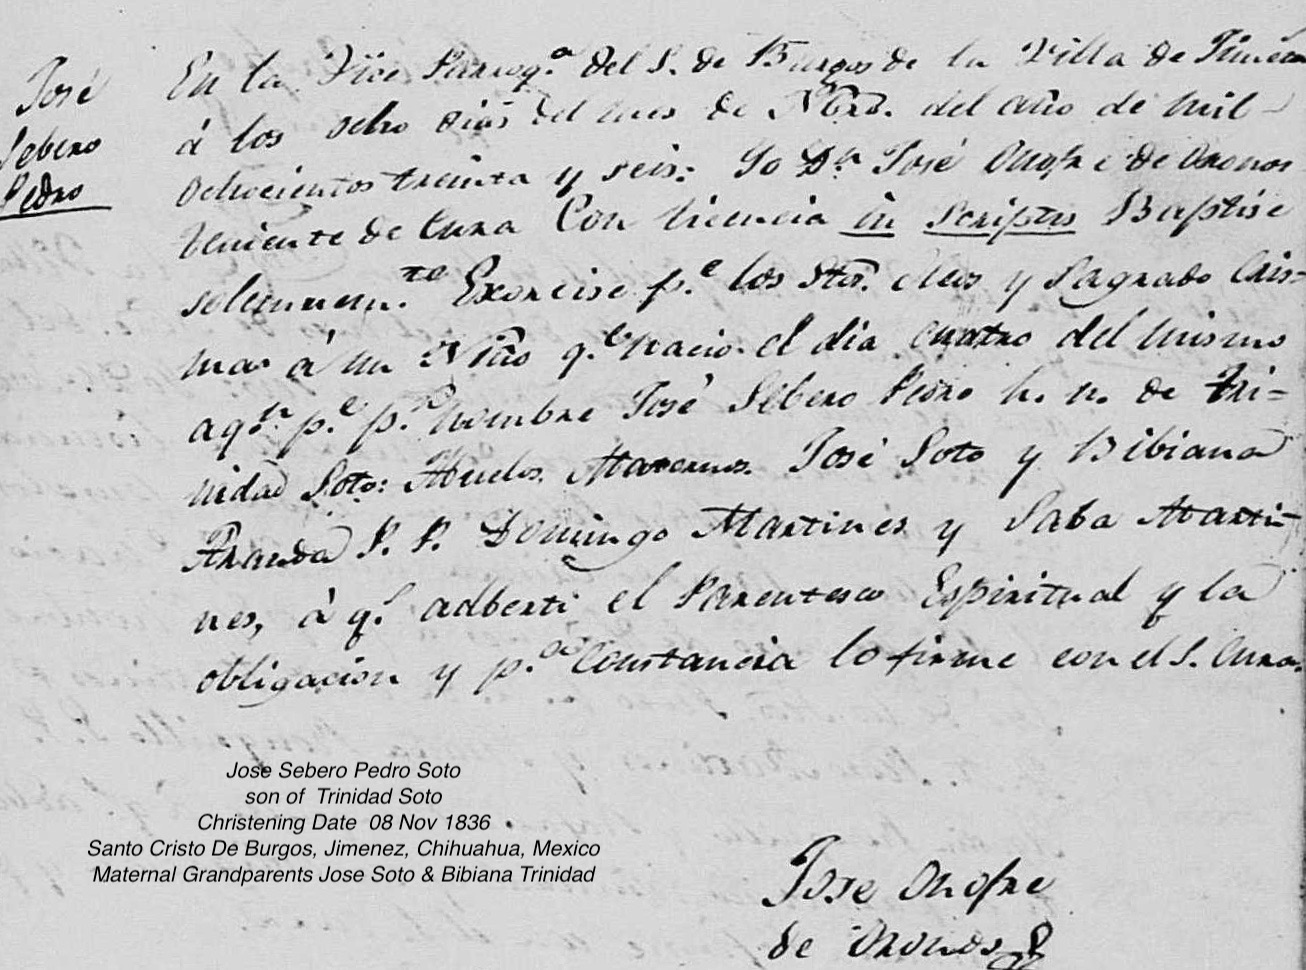 José
Sebero
Pedro
En la Vice Parroq.a del S. de Burgos de la Villa de Ximen
á los ocho dias del mes de Nbre. del año de mil
ochocientos treinta y seis: Yo Dn. José Onofre de Oronos
teniente de Cura Con licencia in Scriptis Baptise
solemnem.te Exorcise p.e los Stos. oleos y Sagrado Cris=
ma á un Niño q.e nacio el dia cuatro del mismo
a q.n p.e p.r nombre José Sebero Pedro h. n. de Tri=
nidad Soto: Abuelos Maternos José Soto y Bibiana
Aranda P. P. Domingo Martines y Saba Marti=
nes, á q.s adberti el Parentesco Espiritual y la
obligacion y p.a Constancia lo firme con el S. Cura.
Jose Sebero Pedro Soto
son of Trinidad Soto
Christening Date 08 Nov 1836
Santo Cristo De Burgos, Jimenez, Chihuahua, Mexico
Maternal Grandparents Jose Soto & Bibiana Trinidad
Jose Onofre
de Oronos